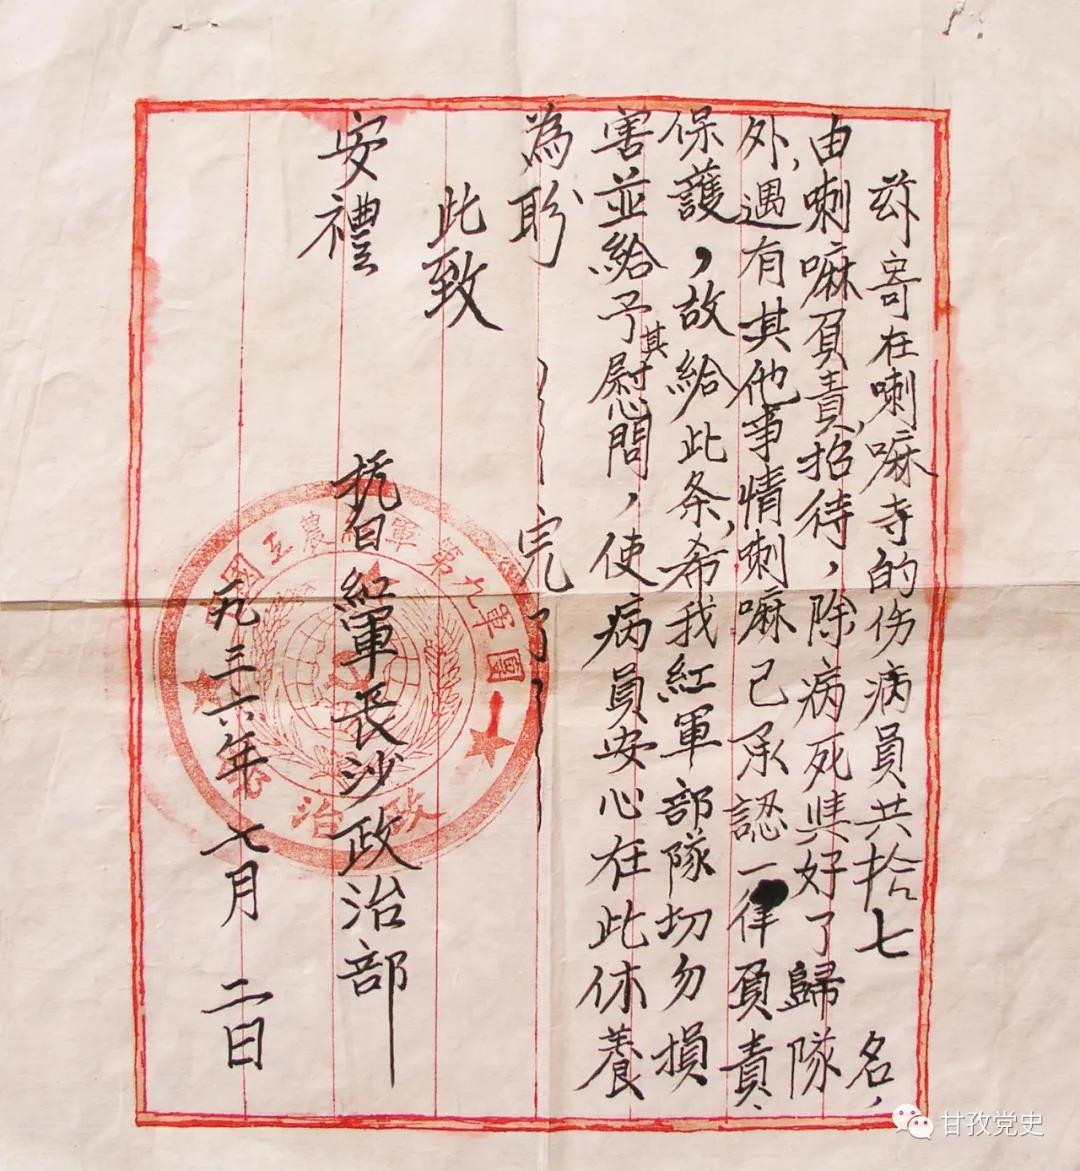 兹寄在喇嘛寺的伤病員共拾七名，
由喇嘛負責招待，除病死與好了歸隊
外，遇有其他事情喇嘛已承認一律負責
保護，故給此条，希我紅軍部隊切勿損
害並給予其慰問，使病員安心在此休養
為盼 完了
此致
安禮
抗日紅軍長沙政治部
一九三六年七月二日
國工農紅軍第九軍團
政治
甘孜党史